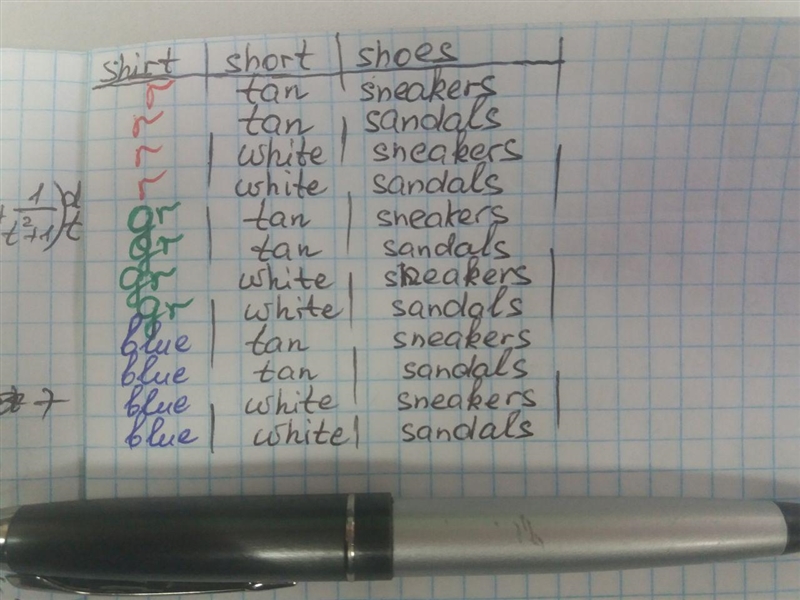 shirt short shoes
r tan sneakers
r tan sandals
r white sneakers
r white sandals
gr tan sneakers
gr tan sandals
gr white sneakers
gr white sandals
blue tan sneakers
blue tan sandals
blue white sneakers
blue white sandals
1
t²+1) dt
7